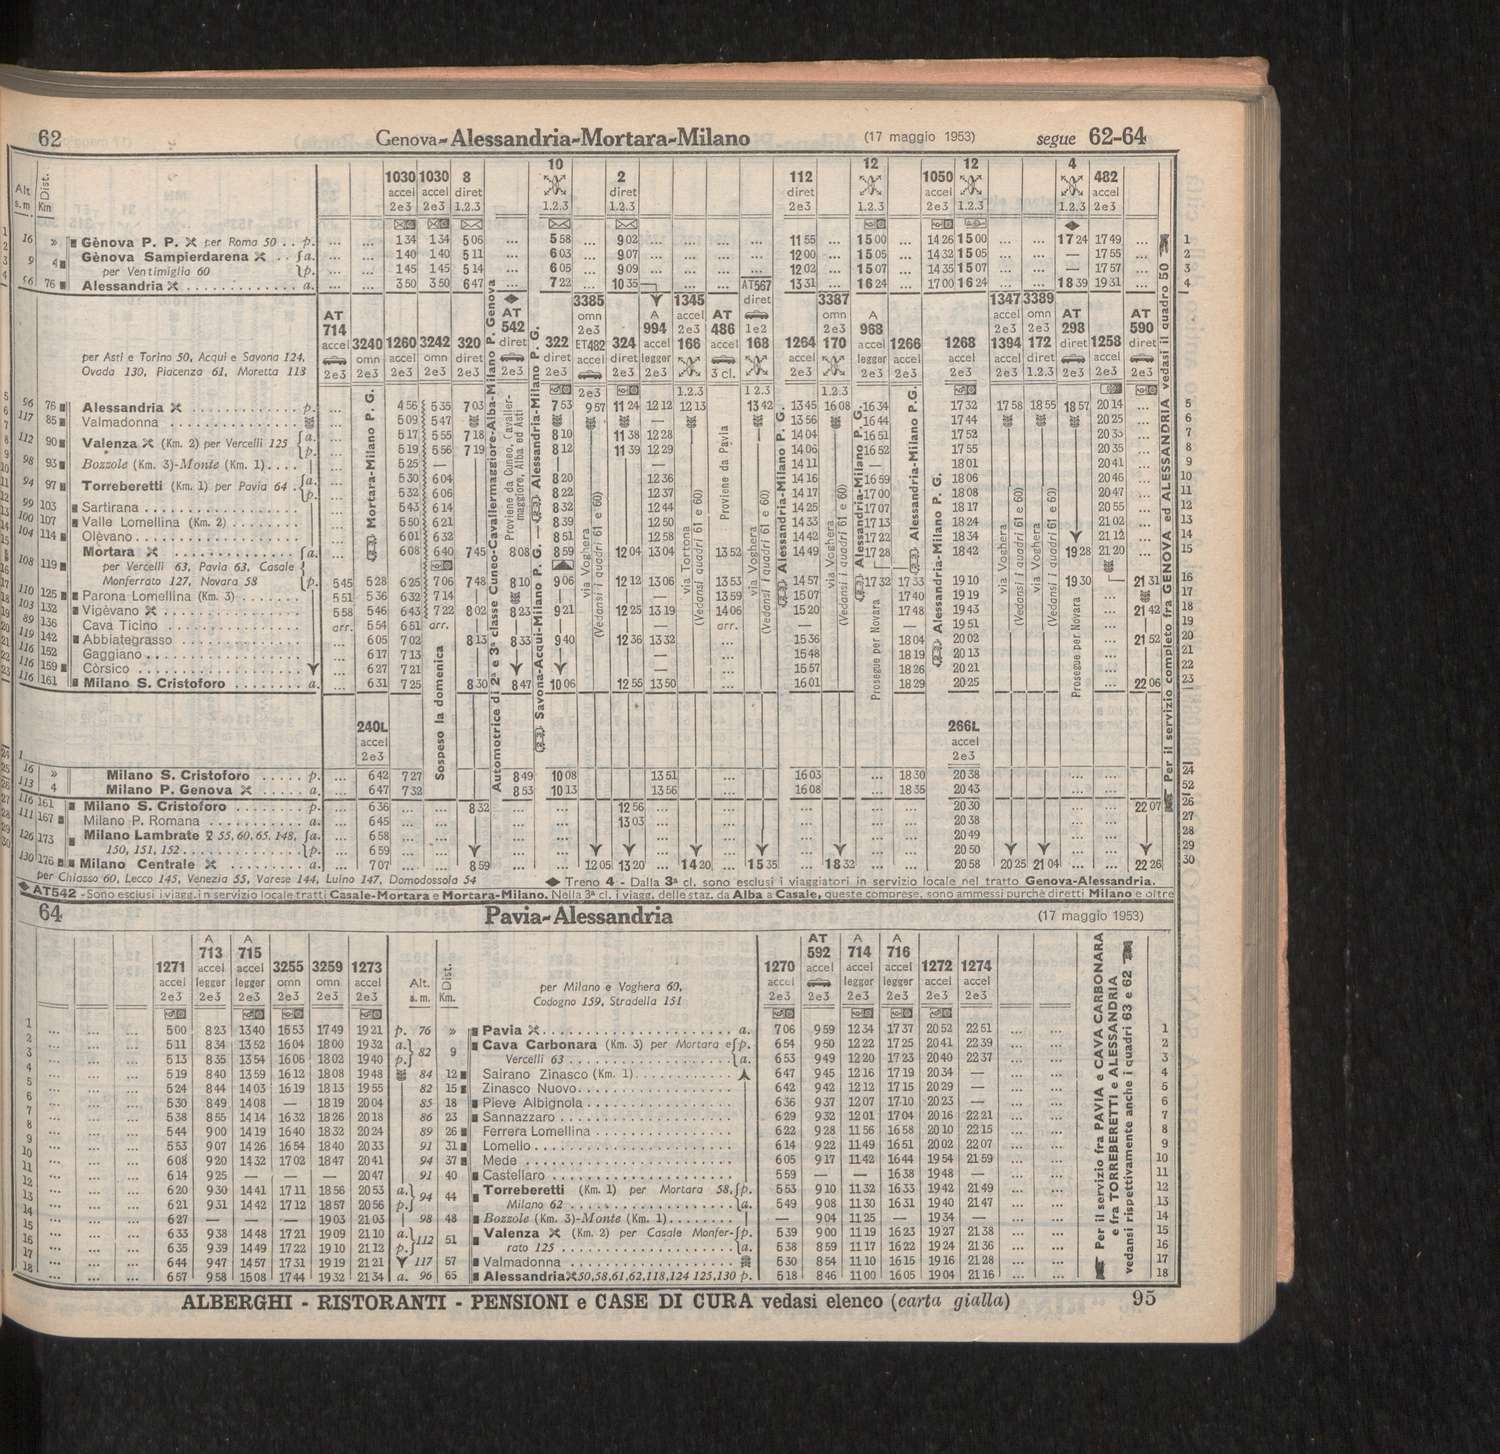 62 Genova-Alessandria-Mortara-Milano (17 maggio 1953) segue 62-64
10 12 12 4
1030 1030 8 2 112 1050 482
accel accel diret diret diret accel accel
2e3 2e3 1.2.3 1.2.3 1.2.3 2e3 1.2.3 2e3 1.2.3 1.2.3 2e3
Alt s.m Dist. Km
16 » Gènova P. P. per Roma 50 . . p. ... ... 1 34 1 34 5 06 ... 5 58 ... 9 02 ... ... ... ... 11 55 ... 15 00 ... 14 26 15 00 ... ... 17 24 17 49 ... 1
9 4 Gènova Sampierdarena . . a. ... ... 1 40 1 40 5 11 6 03 ... 9 07 ... ... ... ... 12 00 ... 15 05 ... 14 32 15 05 ... ... — 17 55 ... 2
per Ventimiglia 60 p. ... ... 1 45 1 45 5 14 6 05 ... 9 09 ... ... ... ... 12 02 ... 15 07 ... 14 35 15 07 ... ... — 17 57 ... 3
76 Alessandria a. ... ... 3 50 3 50 6 47 7 22 ... 10 35 ... ... AT567 13 31 ... 16 24 ... 17 00 16 24 ... ... 18 39 19 31 ... 4
3385 1345 diret 3387 1347 3389
AT 714 3240 1260 3242 320 AT 542 322 ET482 324 A 994 166 AT 486 168 1264 170 A 968 1266 1268 1394 172 AT 298 1258 AT 590
accel omn accel omn diret diret diret accel diret accel legger accel accel diret accel diret accel legger accel accel accel diret diret accel diret
per Asti e Torino 50, Acqui e Savona 124,
Ovada 130, Piacenza 61, Moretta 113
96 76 Alessandria p. ... 4 56 5 35 7 03 7 53 9 57 11 24 12 12 12 13 13 42 13 45 16 08 16 34 17 32 17 58 18 55 18 57 20 14 ... 5
117 85 Valmadonna ... 5 09 5 47 13 56 16 44 17 44 20 25 ... 6
112 90 Valenza (Km. 2) per Vercelli 125 a. ... 5 17 5 55 7 18 8 10 11 38 12 28 14 04 16 51 17 52 20 33 ... 7
p. ... 5 19 5 56 7 19 8 12 11 39 12 29 14 06 16 52 17 55 20 35 ... 8
98 93 Bozzole (Km. 3)-Monte (Km. 1) ... 5 25 — — 14 11 — 18 01 20 41 ... 9
94 97 Torreberetti (Km. 1) per Pavia 64 . a. ... 5 30 6 04 8 20 12 36 14 16 16 59 18 06 20 46 ... 10
p. ... 5 32 6 06 8 22 12 37 14 17 17 00 18 08 20 47 ... 11
99 103 Sartirana ... 5 43 6 14 8 32 12 44 14 25 17 07 18 17 20 55 ... 12
100 107 Valle Lomellina (Km. 2) ... 5 50 6 21 8 39 12 50 14 33 17 13 18 24 21 02 ... 13
104 114 Olèvano ... 6 01 6 32 8 51 12 58 14 42 17 22 18 34 21 12 ... 14
108 119 Mortara a. ... 6 08 6 40 7 45 8 08 8 59 12 04 13 04 13 52 14 49 17 28 18 42 19 28 21 20 ... 15
per Vercelli 63, Pavia 63, Casale
Monferrato 127, Novara 58 p. 5 45 5 28 6 25 7 06 7 48 8 10 9 06 12 12 13 06 13 53 14 57 17 32 17 33 19 10 19 30 21 31 16
110 125 Parona Lomellina (Km. 3) 5 51 5 36 6 32 7 14 13 59 15 07 17 40 19 19 ... 17
103 132 Vigèvano 5 58 5 46 6 43 7 22 8 02 8 23 9 21 12 25 13 19 14 06 15 20 17 48 19 43 ... 21 42 18
89 136 Cava Ticino arr. 5 54 6 51 arr. — arr. — — 19 51 ... 19
119 142 Abbiategrasso ... 6 05 7 02 8 13 8 33 9 40 12 36 13 32 ... 15 36 18 04 20 02 ... 21 52 20
116 152 Gaggiano ... 6 17 7 13 — ... 15 48 18 19 20 13 ... 21
116 159 Còrsico ... 6 27 7 21 — ... 15 57 18 26 20 21 ... 22
116 161 Milano S. Cristoforo a. ... 6 31 7 25 8 30 8 47 10 06 12 56 13 50 ... 16 01 18 29 20 25 ... 22 06 23
Mortara-Milano P. G.
Sospeso la domenica
Automotrice di 2ª e 3ª classe Cuneo-Cavallermaggiore-Alba-Milano P. Genova
Proviene da Cuneo, Cavallermaggiore, Alba ed Asti
Savona-Acqui-Milano P. G. — Alessandria-Milano P. G.
via Voghera (Vedansi i quadri 61 e 60)
via Tortona (Vedansi i quadri 61 e 60)
Proviene da Pavia
via Voghera (Vedansi i quadri 61 e 60)
Alessandria-Milano P. G.
via Voghera (Vedansi i quadri 61 e 60)
Alessandria-Milano P. G.
Prosegue per Novara
Alessandria-Milano P. G.
Alessandria-Milano P. G.
via Voghera (Vedansi i quadri 61 e 60)
via Voghera (Vedansi i quadri 61 e 60)
Prosegue per Novara
Per il servizio completo fra GENOVA ed ALESSANDRIA vedasi il quadro 50
240L 266L
accel accel
2e3 2e3
16 » Milano S. Cristoforo p. ... 6 42 7 27 8 49 10 08 13 51 ... 16 03 ... 18 30 20 38 24
113 4 Milano P. Genova a. ... 6 47 7 32 8 53 10 13 13 56 ... 16 08 ... 18 35 20 43
116 161 Milano S. Cristoforo p. ... 6 36 ... 8 32 ... ... 12 56 ... ... ... ... ... 20 30 ... 22 07 26
111 167 Milano P. Romana ... 6 45 ... ... ... 13 03 ... ... ... ... ... 20 38 ... 27
126 173 Milano Lambrate 55, 60, 65, 148, a. ... 6 58 ... ... ... ... ... ... ... ... 20 49 ... 28
150, 151, 152 p. ... 6 59 ... ... ... ... ... ... ... ... 20 50 ... 29
130 176 Milano Centrale a. ... 7 07 ... 8 59 ... ... 12 05 13 20 ... 14 20 ... 15 35 ... 18 32 ... ... 20 58 20 25 21 04 ... ... 22 26 30
per Chiasso 60, Lecco 145, Venezia 55, Varese 144, Luino 147, Domodossola 54 Treno 4 - Dalla 3ª cl. sono esclusi i viaggiatori in servizio locale nel tratto Genova-Alessandria.
AT542 - Sono esclusi i viagg. in servizio locale tratti Casale-Mortara e Mortara-Milano. Nella 3ª cl. i viagg. delle staz. da Alba a Casale, queste comprese, sono ammessi purchè diretti Milano e oltre
64 Pavia-Alessandria (17 maggio 1953)
A A AT A A
1271 713 715 3255 3259 1273 1270 592 714 716 1272 1274
accel accel accel omn omn accel Alt. Dist. per Milano e Voghera 60, accel accel accel accel accel accel
2e3 legger legger 2e3 2e3 2e3 s. m. Km. Codogno 159, Stradella 151 2e3 2e3 legger legger 2e3 2e3
1 ... ... ... 5 00 8 23 13 40 15 53 17 49 19 21 p. 76 » Pavia a. 7 06 9 59 12 34 17 37 20 52 22 51 ... ... 1
2 ... ... ... 5 11 8 34 13 52 16 04 18 00 19 32 a. 82 9 Cava Carbonara (Km. 3) per Mortara e p. 6 54 9 50 12 22 17 25 20 41 22 39 ... ... 2
3 ... ... ... 5 13 8 35 13 54 16 06 18 02 19 40 p. Vercelli 63 a. 6 53 9 49 12 20 17 23 20 40 22 37 ... ... 3
4 ... ... ... 5 19 8 40 13 59 16 12 18 08 19 48 84 12 Sairano Zinasco (Km. 1) 6 47 9 45 12 16 17 19 20 34 — ... ... 4
5 ... ... ... 5 24 8 44 14 03 16 19 18 13 19 55 82 15 Zinasco Nuovo 6 42 9 42 12 12 17 15 20 29 — ... ... 5
6 ... ... ... 5 30 8 49 14 08 — 18 19 20 04 85 18 Pieve Albignola 6 36 9 37 12 07 17 10 20 23 — ... ... 6
7 ... ... ... 5 38 8 55 14 14 16 32 18 26 20 18 86 23 Sannazzaro 6 29 9 32 12 01 17 04 20 16 22 21 ... ... 7
8 ... ... ... 5 44 9 00 14 19 16 40 18 32 20 24 89 26 Ferrera Lomellina 6 22 9 28 11 56 16 58 20 10 22 15 ... ... 8
9 ... ... ... 5 53 9 07 14 26 16 54 18 40 20 33 91 31 Lomello 6 14 9 22 11 49 16 51 20 02 22 07 ... ... 9
10 ... ... ... 6 08 9 20 14 32 17 02 18 47 20 41 94 37 Mede 6 05 9 17 11 42 16 44 19 54 21 59 ... ... 10
11 ... ... ... 6 14 9 25 — — — 20 47 91 40 Castellaro 5 59 — — 16 38 19 48 — ... ... 11
12 ... ... ... 6 20 9 30 14 41 17 11 18 56 20 53 a. 94 44 Torreberetti (Km. 1) per Mortara 58, p. 5 53 9 10 11 32 16 33 19 42 21 49 ... ... 12
13 ... ... ... 6 21 9 31 14 42 17 12 18 57 20 56 p. Milano 62 a. 5 49 9 08 11 30 16 31 19 40 21 47 ... ... 13
14 ... ... ... 6 27 — — — 19 03 21 03 98 48 Bozzole (Km. 3)-Monte (Km. 1) — 9 04 11 25 — 19 34 — ... ... 14
15 ... ... ... 6 33 9 38 14 48 17 21 19 09 21 10 a. 112 51 Valenza (Km. 2) per Casale Monfer- p. 5 39 9 00 11 19 16 23 19 27 21 38 ... ... 15
16 ... ... ... 6 35 9 39 14 49 17 22 19 10 21 12 p. rato 125 a. 5 38 8 59 11 17 16 22 19 24 21 36 ... ... 16
17 ... ... ... 6 44 9 47 14 57 17 31 19 19 21 21 117 57 Valmadonna 5 30 8 54 11 10 16 15 19 16 21 28 ... ... 17
18 ... ... ... 6 57 9 58 15 08 17 44 19 32 21 34 a. 96 65 Alessandria 50,58,61,62,118,124 125,130 p. 5 18 8 46 11 00 16 05 19 04 21 16 ... ... 18
Per il servizio fra PAVIA e CAVA CARBONARA
e fra TORREBERETTI e ALESSANDRIA
vedansi rispettivamente anche i quadri 63 e 62
ALBERGHI - RISTORANTI - PENSIONI e CASE DI CURA vedasi elenco (carta gialla) 95